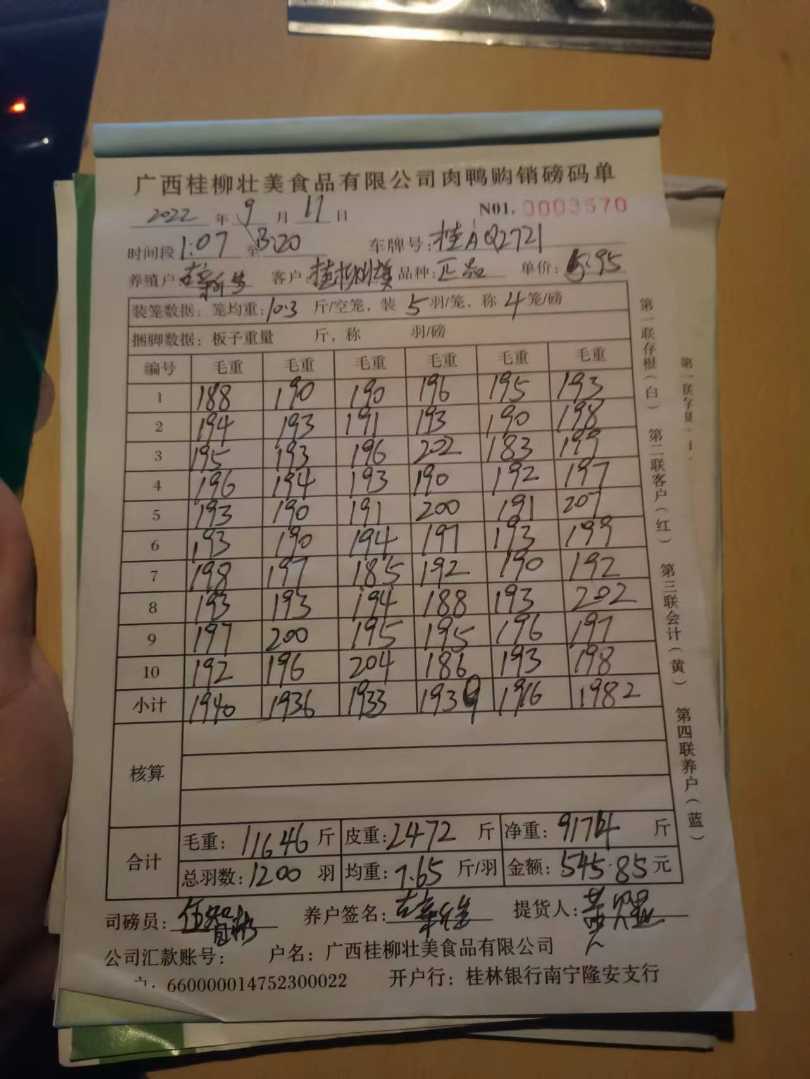 广西桂柳壮美食品有限公司肉鸭购销磅码单
2022 年 9 月 11 日 N01. 0003570
时间段 1:07 至 3:20 车牌号: 桂AQ2721
养殖户 客户 桂柳壮美 品种: 正品 单价: 5.95
装笼数据: 笼均重: 10.3 斤/空笼, 装 5 羽/笼, 称 4 笼/磅
捆脚数据: 板子重量 斤, 称 羽/磅
编号 毛重 毛重 毛重 毛重 毛重 毛重
1 188 190 190 196 195 193
2 194 193 191 193 190 198
3 195 193 196 202 183 199
4 196 194 193 190 192 197
5 193 190 191 200 191 207
6 193 190 194 197 193 199
7 198 197 185 192 190 192
8 193 193 194 188 193 202
9 197 200 195 195 196 197
10 192 196 204 186 193 198
小计 1940 1936 1933 1939 1916 1982
核算
合计 毛重: 11646 斤 皮重: 2472 斤 净重: 9174 斤
总羽数: 1200 羽 均重: 7.65 斤/羽 金额: 545.85 元
司磅员: 养户签名: 提货人:
公司汇款账号: 户名: 广西桂柳壮美食品有限公司
660000014752300022 开户行: 桂林银行南宁隆安支行
第一联存根(白) 第二联客户(红) 第三联会计(黄) 第四联养户(蓝)